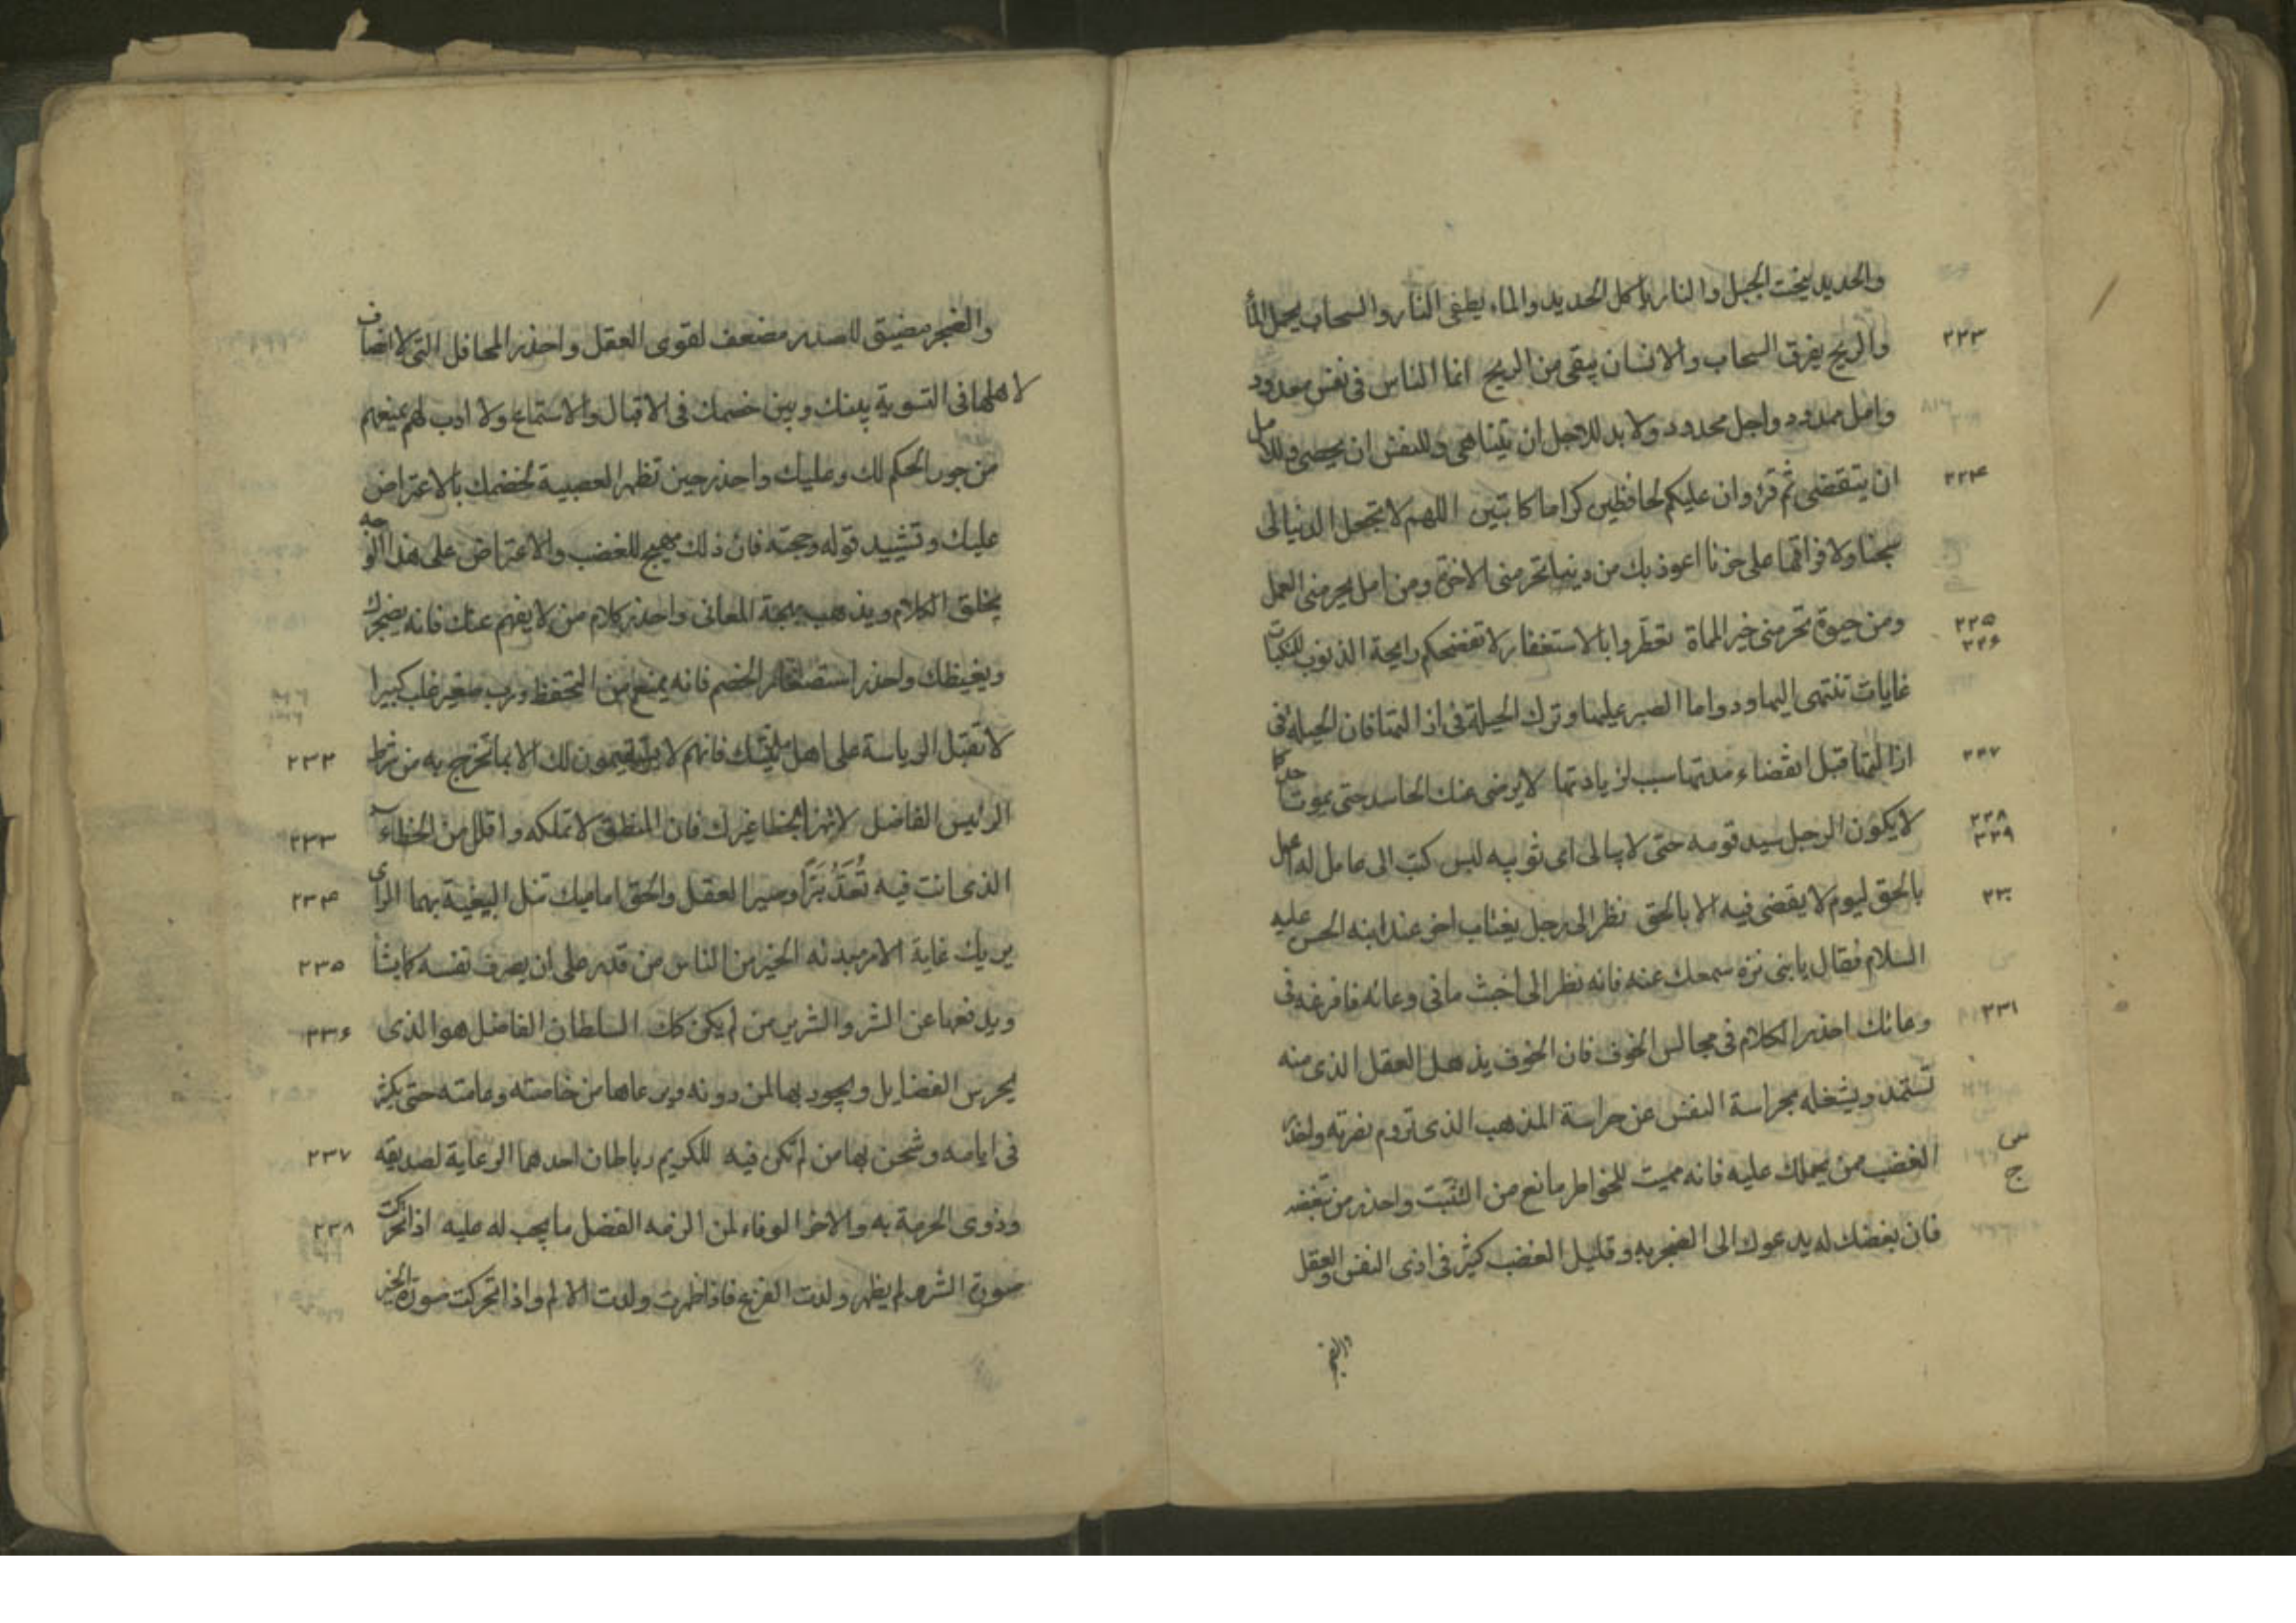 والحديد ينحت الجبل والنار يأكل الحديد والماء يطفى النار والسحاب يحمل الماء
والريح يفرق السحاب والانسان يتقى من الريح انما الناس فى نفس معدود ٢٢٣
وامل ممدود واجل محدود ولا بد للاجل ان يتناهى وللنفس ان يحصى وللامل
ان يتقضى ثم قرء وان عليكم لحافظين كراما كاتبين اللهم لا تجعل الدنيا لى ٢٢۴
سجنا ولا فراقها على حزنا اعوذ بك من دنيا تحرمنى الاخرة ومن امل يحرمنى العمل
ومن حيوة تحرمنى خير المماة تعطروا بالاستغفار لا تفضحكم رايحة الذنوب للنكبات ٢٢۵ ٢٢۶
غايات تنتهى اليها ودواما الصبر عليها وترك الحيلة فى ازالتها فان الحيلة فى
ازالتها قبل انقضاء مدتها سبب لزيادتها لا يرضى عنك الحاسد حتى يموت احدكما ٢٢٧
لا يكون الرجل سيد قومه حتى لا يبالى اى ثوبيه لبس كتب الى عامل له اعمل ٢٢٨ ٢٢٩
بالحق ليوم لا يقضى فيه الا بالحق نظر الى رجل يغتاب اخر عند ابنه الحسن عليه ٢٣٠
السلام فقال يا بنى نزه سمعك عنه فانه نظر الى اخبث ما فى وعائه فافرغه فى
وعائك احذر الكلام فى مجالس الخوف فان الخوف يذهل العقل الذى منه ٢٣١
تستمد ويشغله بحراسة النفس عن حراسة المذهب الذى تروم نصرته واحذر
الغضب ممن يحملك عليه فانه مميت للخواطر مانع من التثبت واحذر من تبغضه
فان بغضك له يدعوك الى الضجر به وقليل الغضب كثير فى اذى النفس والعقل
والضجر
والضجر مضيق للصدر مضعف لقوى العقل واحذر المحافل التى لا انصاف
لاهلها فى التسوية بينك وبين خصمك فى الاقبال والاستماع ولا ادب لهم يمنعهم
من جور الحكم لك وعليك واحذر حين تظهر العصبية لخصمك بالاعتراض
عليك وتشييد قوله وحجته فان ذلك يهيج للغضب والاعتراض على هذا الوجه
يخلق الكلام ويذهب بهجة المعانى واحذر كلام من لا يفهم عنك فانه يضجرك
ويغيظك واحذر استصغار الخصم فانه يمنع من التحفظ ورب صغير غلب كبيرا
لا تقبل الرياسة على اهل مدينتك فانهم لا يستقيمون لك الا بما تخرج به من شرط ٢٣٢
الرئيس الفاضل لا تهزأ بخطا غيرك فان المنطق لا تملكه واقلل من الخطاء ٢٣٣
الذى انت فيه تعد برا وسير العقل والحق اماميك تنل البغية بهما الراى ٢٣۴
يريك غاية الامر مبدئه الخير من الناس من قدر على ان يصرف نفسه كما يشا ٢٣۵
ويدفعها عن الشر والشرير من لم يكن كك السلطان الفاضل هو الذى ٢٣۶
يحرس الفضايل ويجود بها لمن دونه ويرعاها من خاصته وعامته حتى يكثر
فى ايامه وشحن بها من لم تكن فيه للكريم رباطان احدهما الرعاية لصديقه ٢٣٧
وذوى الحرمة به والاخر الوفاء لمن الزمه الفضل ما يجب له عليه اذا تحركت ٢٣٨
صورة الشر ولم يظهر ولدت الفزع فاذا ظهرت ولدت الالم واذا تحركت صورة الخير